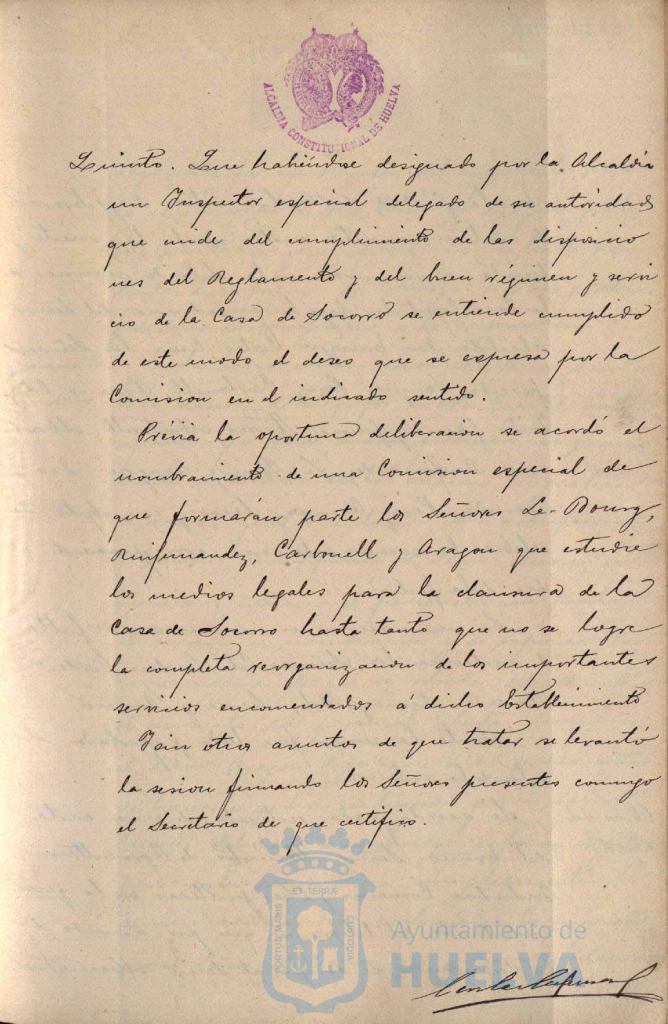 ALCALDIA CONSTITUCIONAL DE HUELVA
Quinto. Que habiéndose designado por la Alcaldía
un Inspector especial delegado de su autoridad
que cuide del cumplimiento de las disposicio
nes del Reglamento y del buen régimen y servi
cio de la Casa de Socorro se entiende cumplido
de este modo el deseo que se expresa por la
Comision en el indicado sentido.
Prévia la oportuna deliberacion se acordó el
nombramiento de una Comision especial de
que formarán parte los Señores Le-Bourg,
Carbonell y Aragon que estudie
los medios legales para la clausura de la
Casa de Socorro hasta tanto que no se logre
la completa reorganizacion de los importantes
servicios encomendados á dicho Establecimiento
sin otros asuntos de que tratar se levantó
la sesion firmando los Señores presentes conmigo
el Secretario de que certifico.
PORTUS MARIS ET TERRAE CUSTODIA
Ayuntamiento de
HUELVA